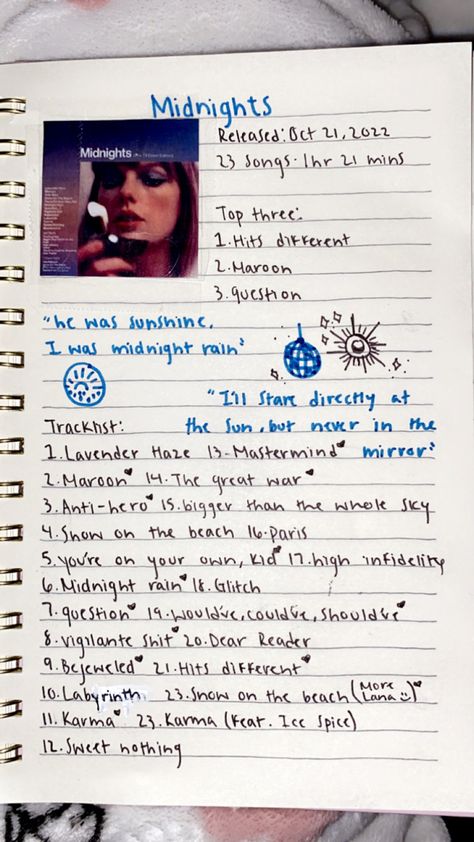 Midnights
Midnights
Released: Oct 21, 2022
23 songs · 1hr 21 mins
Top three:
1. Hits different
2. Maroon
3. question
"he was sunshine,
I was midnight rain"
"I'll stare directly at
the sun, but never in the
mirror"
Tracklist:
1. Lavender Haze 13- Mastermind
2. Maroon 14. The great war
3. Anti-hero 15. bigger than the whole sky
4. Snow on the beach 16. Paris
5. you're on your own, kid 17. high infidelity
6. Midnight rain 18. Glitch
7. question 19. would've, could've, should've
8. vigilante shit 20. Dear Reader
9. Bejeweled 21. Hits different
10. Labyrinth 23. Snow on the beach (More Lana :))
11. Karma 23. Karma (feat. Ice Spice)
12. Sweet nothing